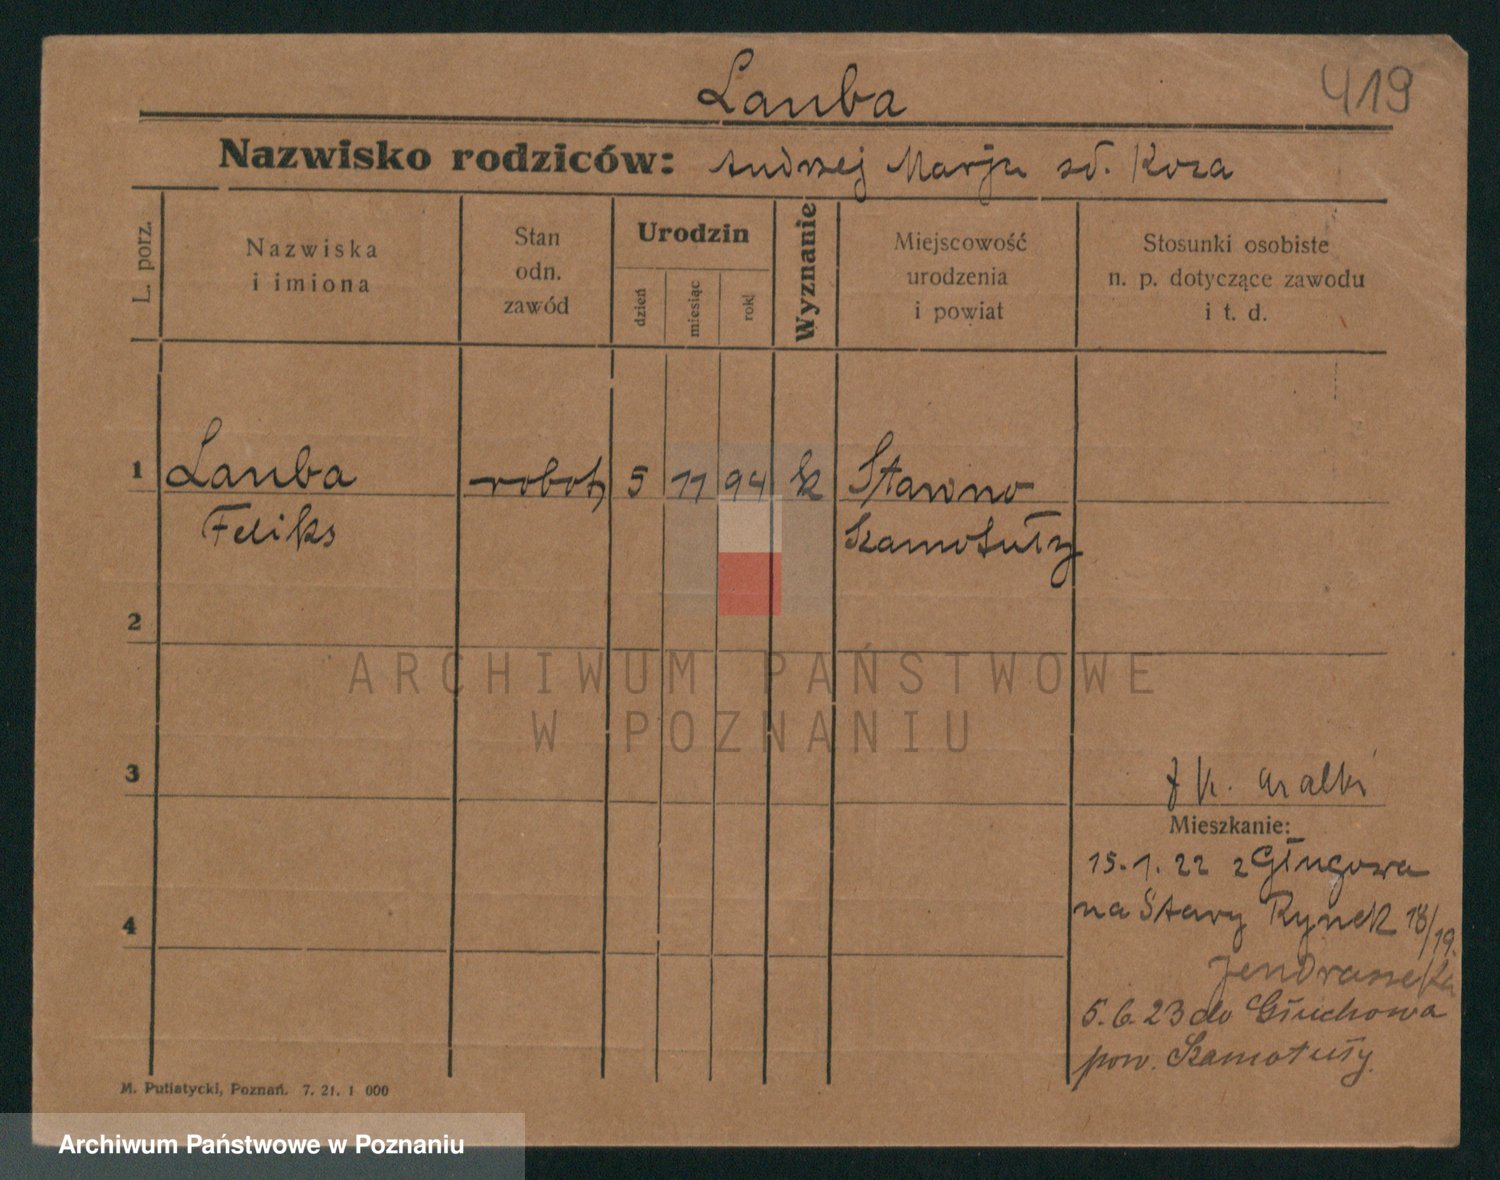 Lauba
419
Nazwisko rodziców: Andrzej Marja zd. Koza
L. porz.
Nazwiska
i imiona
Stan
odn.
zawód
Urodzin
dzień
miesiąc
rok
Wyznanie
Miejscowość
urodzenia
i powiat
Stosunki osobiste
n. p. dotyczące zawodu
i t. d.
1 Lauba robotn 5 11 94 k
Feliks Szamotuły
2
ARCHIWUM PAŃSTWOWE
W POZNANIU
3
Mieszkanie:
15.1.22 z
na Stary Rynek 18/19.
4
5.6.23 do Głuchowa
pow. Szamotuły.
M. Putiatycki, Poznań. 7. 21. 1 000
Archiwum Państwowe w Poznaniu